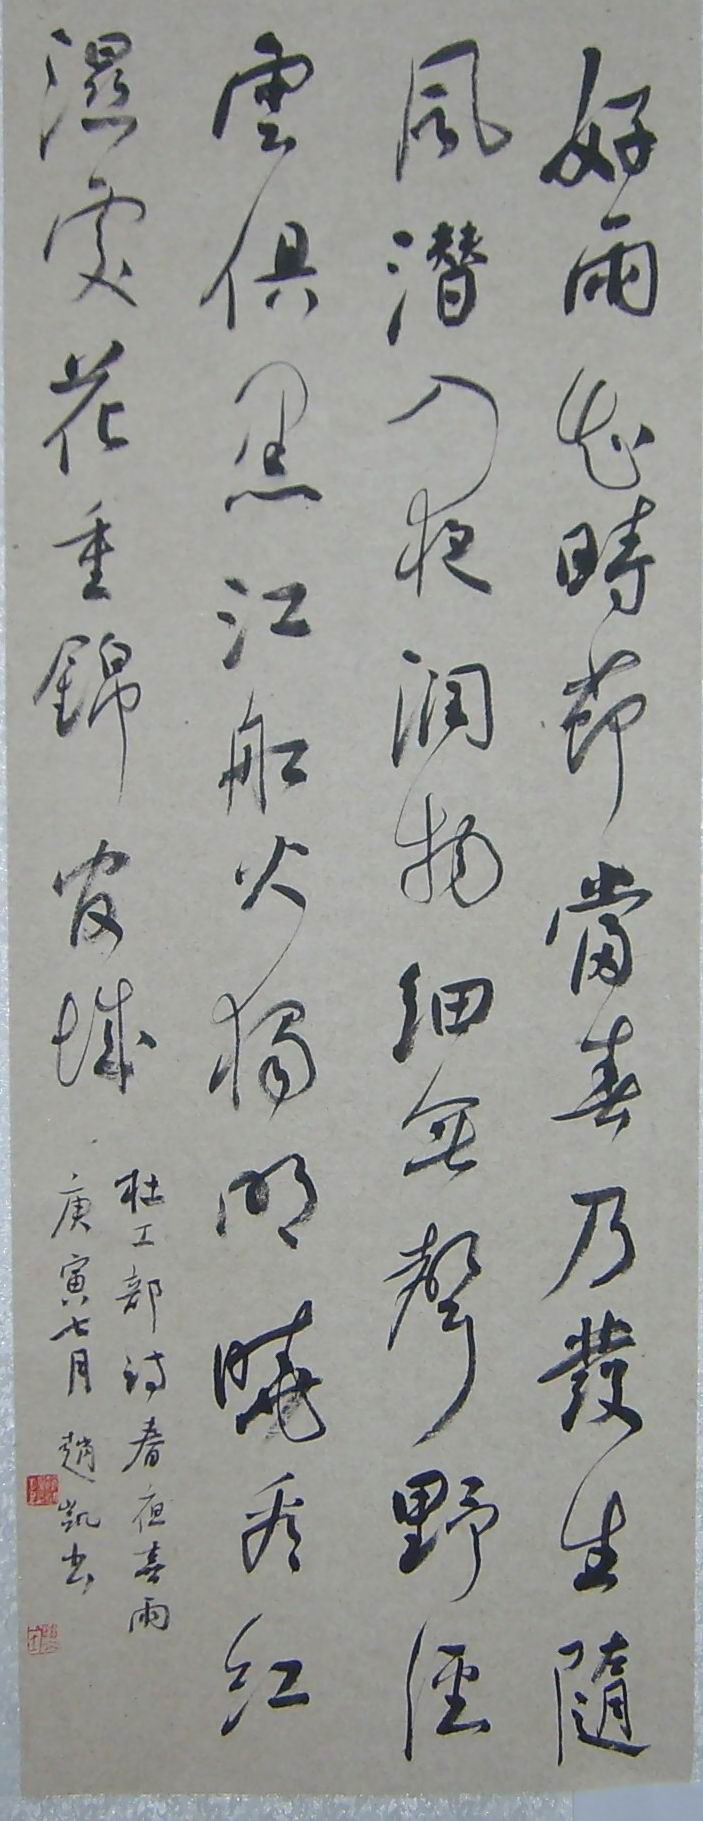 好雨知時節當春乃發生隨
風潛入夜润物細無聲野徑
雲俱黑江船火獨明曉看紅
濕處花重錦官城
杜工部诗春夜喜雨
庚寅七月趙凱书